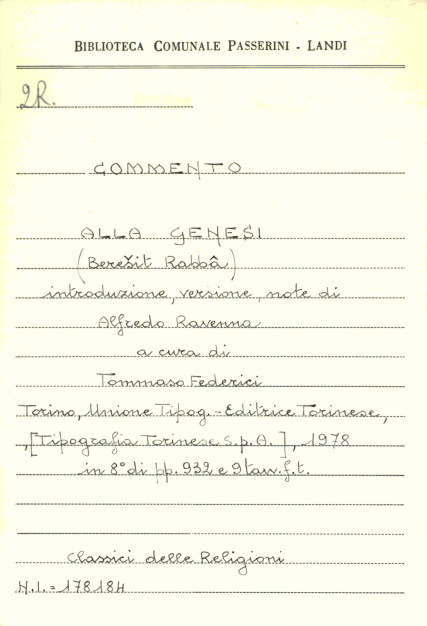 BIBLIOTECA COMUNALE PASSERINI - LANDI
2R.
COMMENTO
ALLA GENESI
(Berešit Rabbâ)
introduzione, versione, note di
Alfredo Ravenna
a cura di
Tommaso Federici
Torino, Unione Tipog.-Editrice Torinese,
,[Tipografia Torinese S.p.A.], 1978
in 8° di pp. 932 e 9 tav. f.t.
Classici delle Religioni
N.I. = 178184